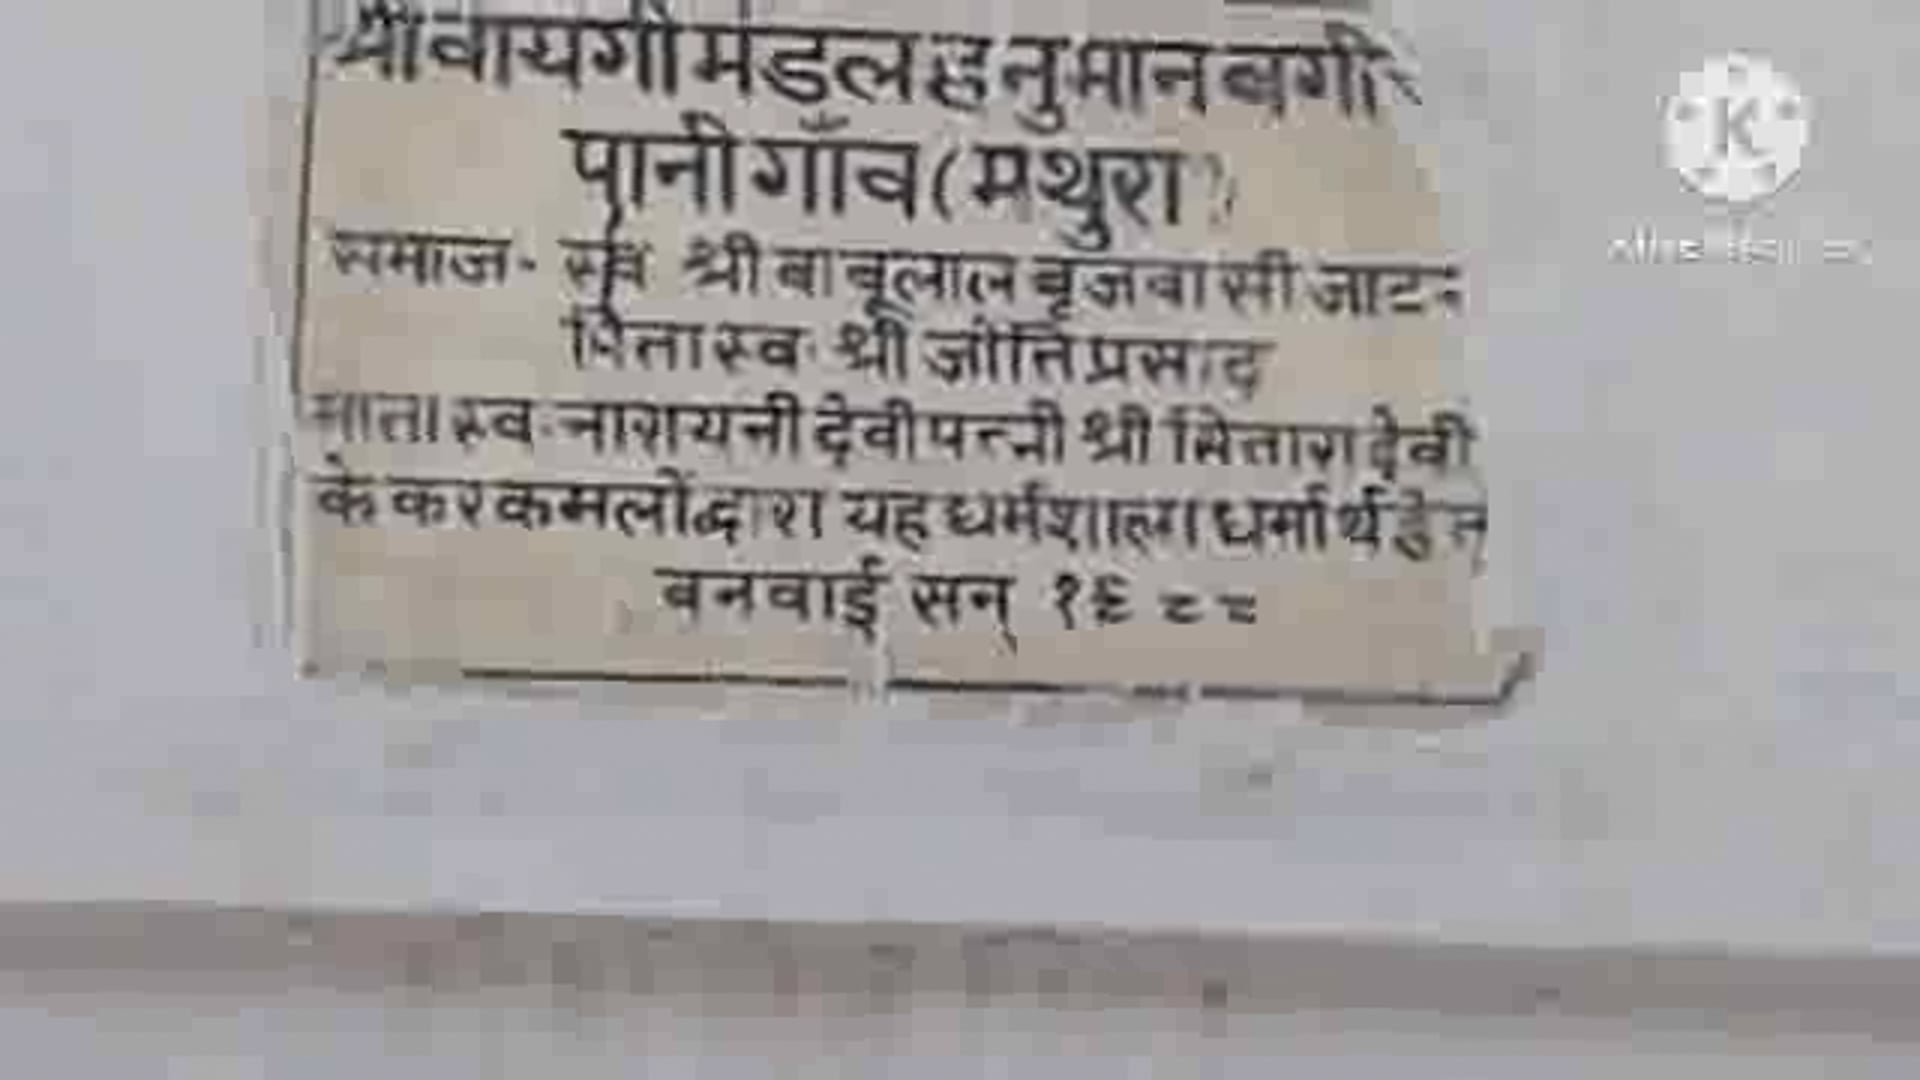 श्री वायगी मंडल हनुमान बगी
पानी गाँव (मथुरा)
समाज - स्व श्री बाबूलाल बृजवासी जाटव
पिता स्व. श्री जोति प्रसाद
माता स्व. नारायनी देवी पत्नी श्री सितारा देवी
के कर कमलों द्वारा यह धर्मशाला धर्मार्थ हेतु
बनवाई सन् १९८८